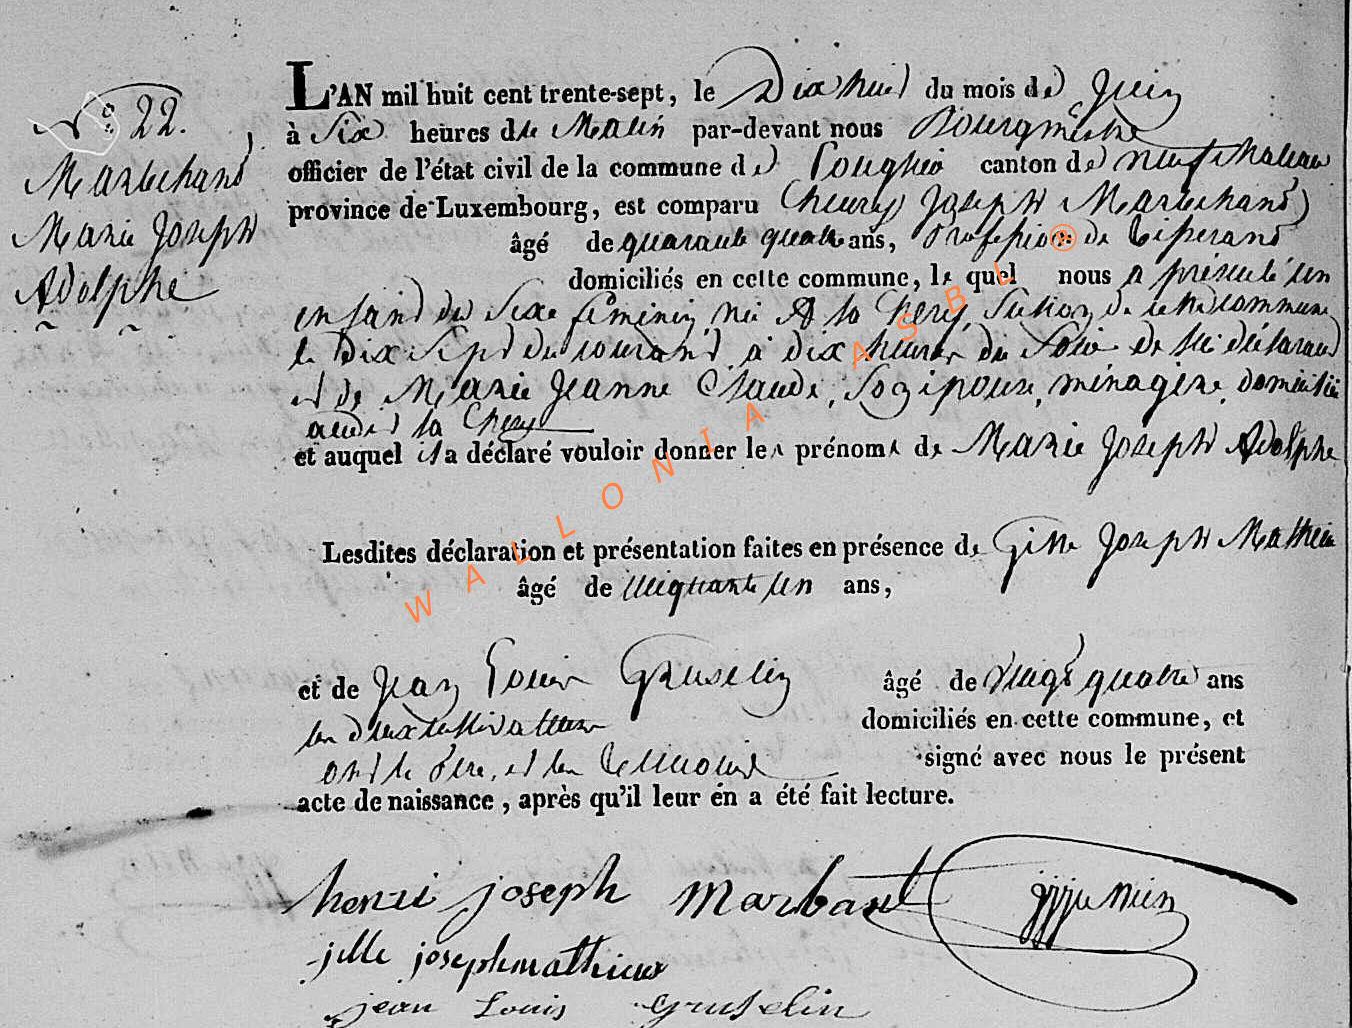 N° 22.
Marbehant
Marie Joseph
Adolphe
L'AN mil huit cent trente-sept, le Dix huit du mois de Juin
à Six heures du Matin par-devant nous Bourgmestre
officier de l'état civil de la commune de Louglier canton de neufchateau
province de Luxembourg, est comparu henry Joseph Marbehant
âgé de quarante quatre ans, Profession de Tisserand
domiciliés en cette commune, le quel nous a présenté un
enfant du Sexe féminin, né A la hery, Section de cette commune
le Dix Sept du courant, a dix heures du Soir de lui déclarant
et de Marie Jeanne Claude, Son épouse, ménagère, domiciliée
audit la hery
et auquel il a déclaré vouloir donner les prénoms de Marie Joseph Adolphe
Lesdites déclaration et présentation faites en présence de Gille Joseph Mathieu
âgé de cinquante un ans,
et de Jean Louis Gruselin âgé de vingt quatre ans
les deux cultivateurs domiciliés en cette commune, et
ont le Père, et les témoins signé avec nous le présent
acte de naissance, après qu'il leur en a été fait lecture.
WALLONIA ASBL ®
henri joseph Marbant
jille joseph mathieux
jean Louis gruselin